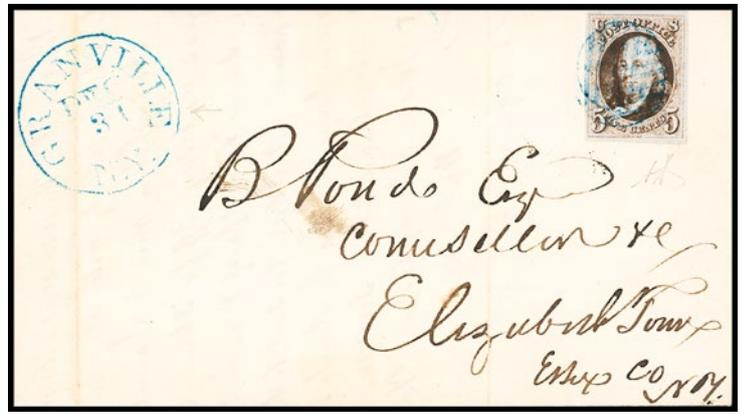 GRANVILLE
DEC
31
N.Y.
POST OFFICE
5 FIVE CENTS 5
B Ponds Esq
Counsellor &c
Elizabeth Town
Essex Co N.Y.